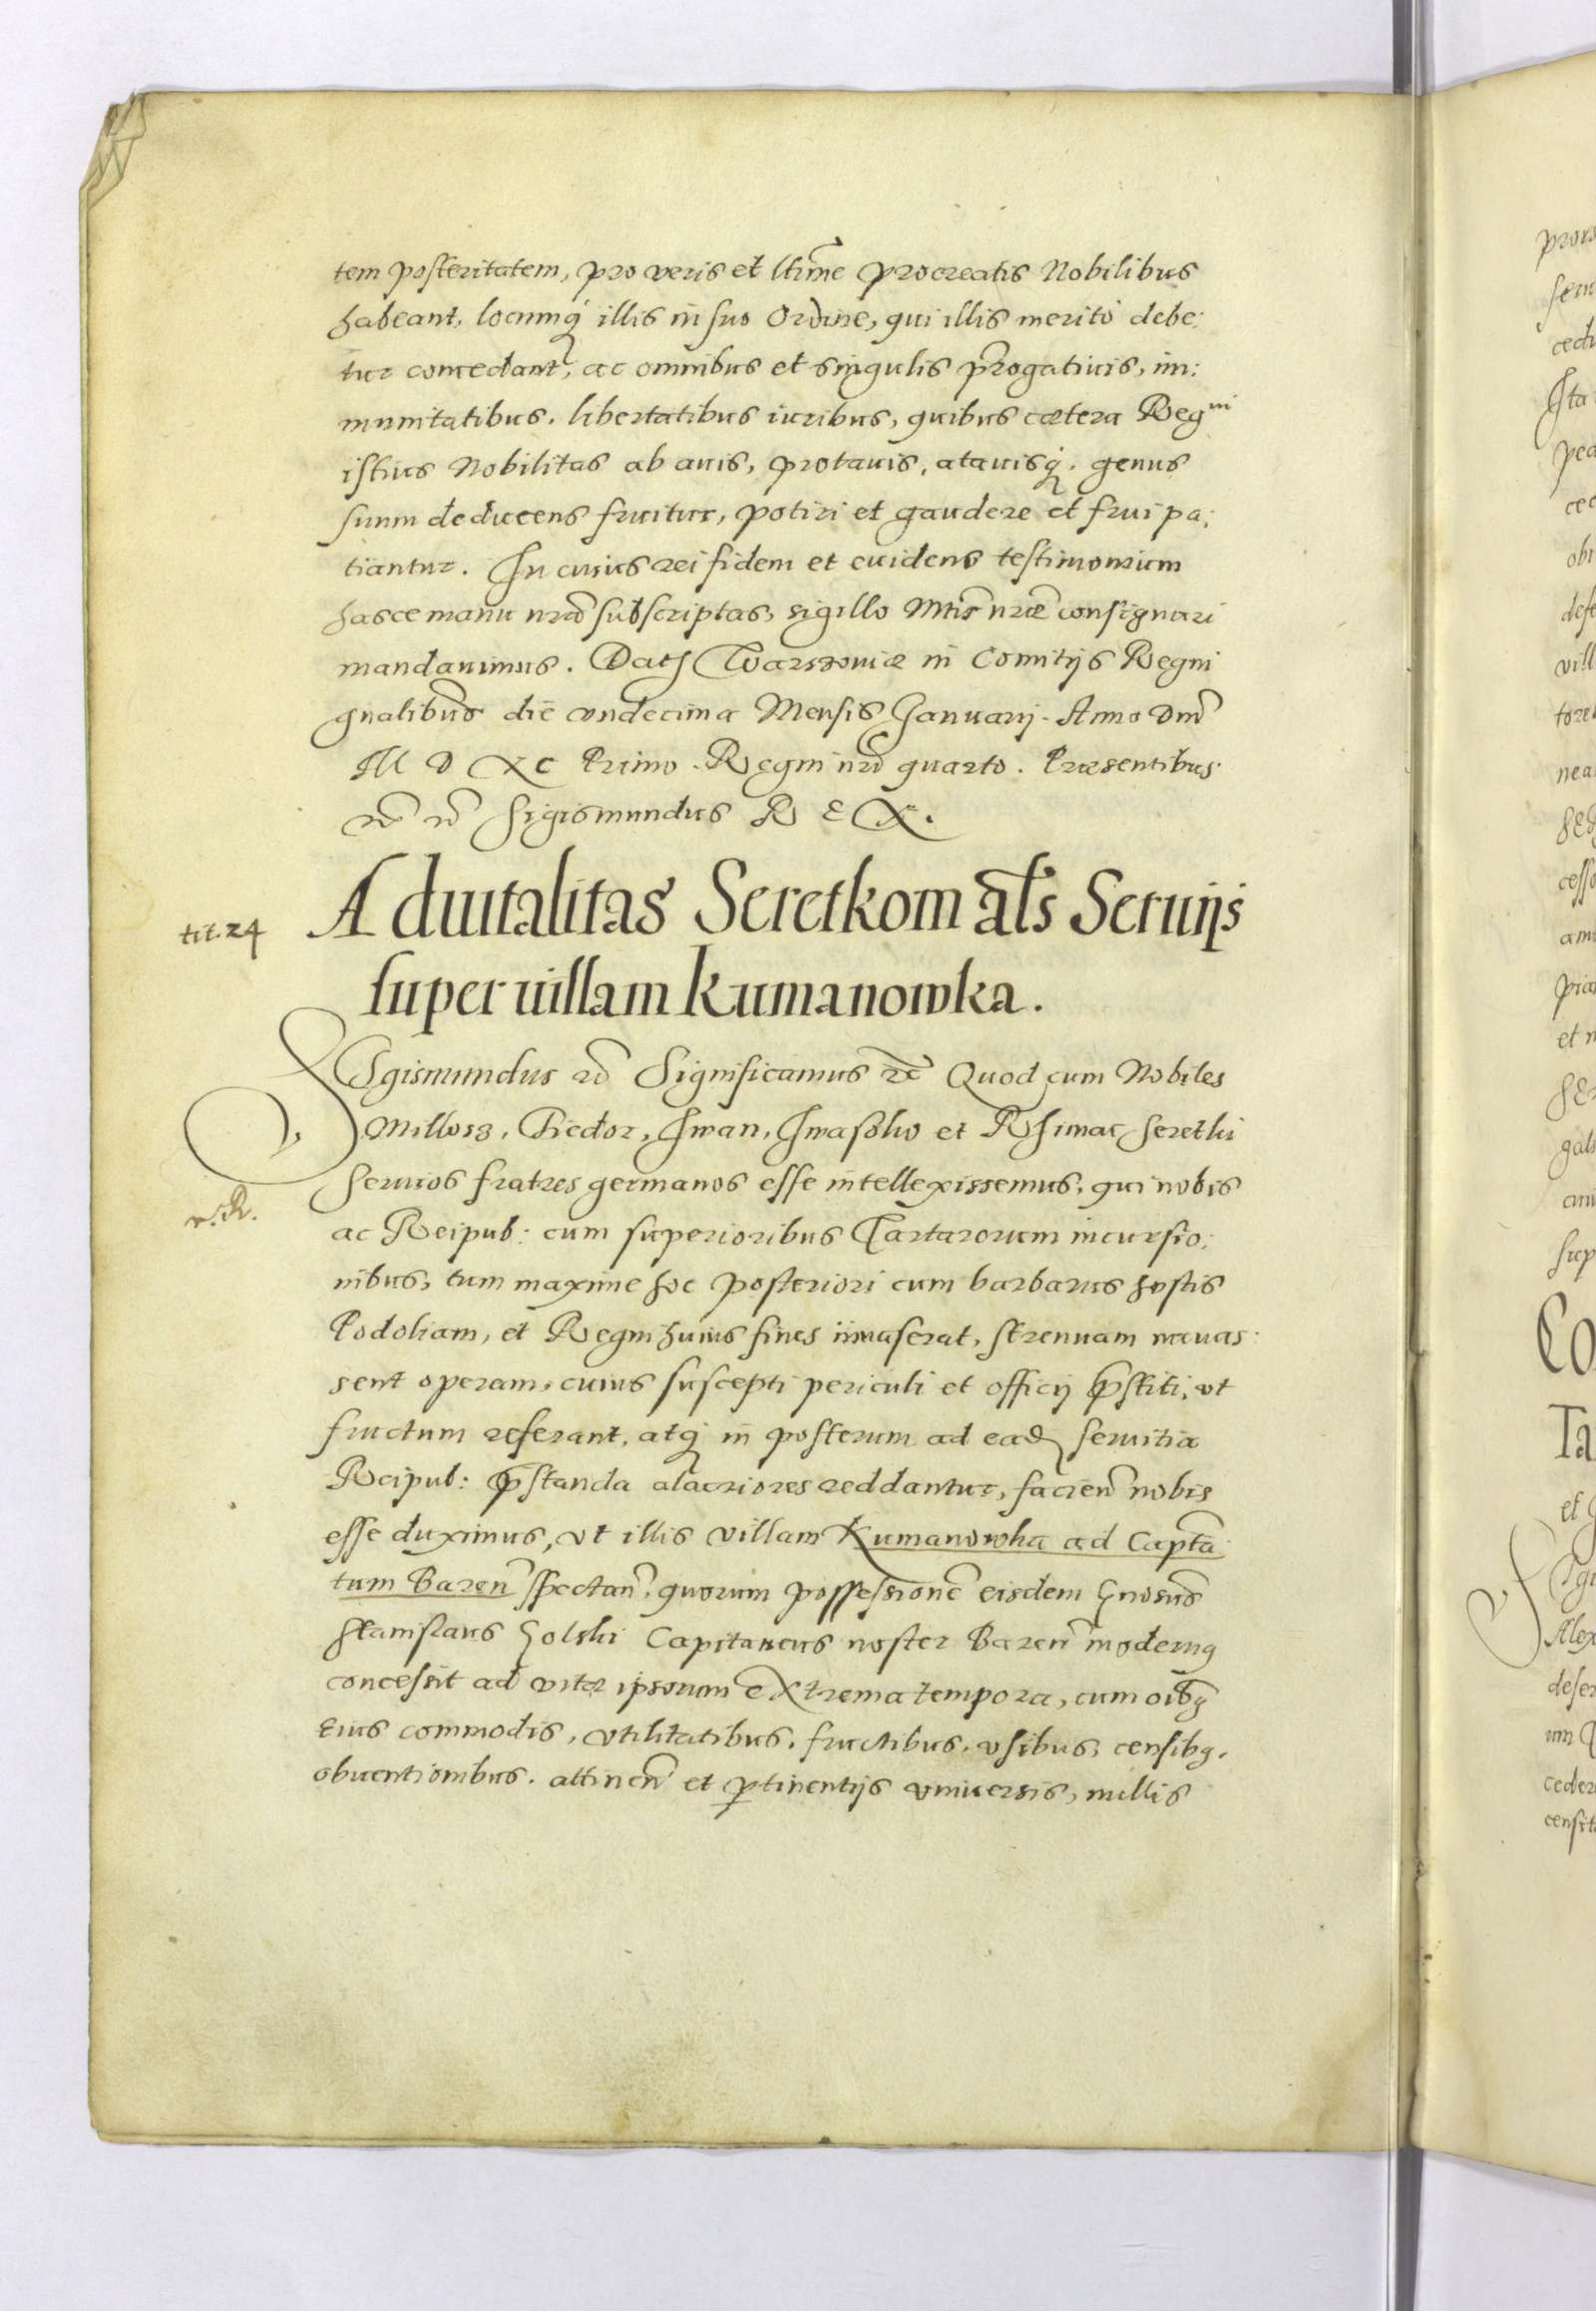 tem posteritatem, pro veris et ltime procreatis Nobilibus
habeant, locumq́ illis in suo Ordine, qui illis merito debe:
tur concedant, ac omnibus et singulis prrogatiuis, im:
munitatibus. libertatibus iuribus, quibus cætera Regni
istius Nobilitas ab auis, protauis, atauisq́. genus
suum deducens fruitur, potiri et gaudere et frui pa:
tiantur. In cuius rei fidem et euidens testimonium
hasce manu nra subscriptas, sigillo Mtis nræ consignari
mandauimus. Dat Warszouiæ in Comitijs Regni
gnalibus die vndecima Mensis Januarij. Anno Dni
M D XC Primo. Regni nri quarto. Præsentibus
Sigismundus R E X.
tit. 24
Aduitalitas Seretkom als Seruijs
super uillam Kumanowka.
Sigismundus Significamus Quod cum Nobiles
Millosz, Fiedor, Iwan, Iwasko et Rhimac Seretki
Seruios fratres germanos esse intellexissemus, qui nobis
ac Reipub: cum superioribus Tartarorum incursio:
nibus, tum maxime hoc posteriori cum barbarus hostis
Podoliam, et Regni huius fines inuaserat, strenuam nauas:
sent operam, cuius suscepti periculi et officij pstiti, vt
fructum referant, atq́ in posterum ad ead seruitia
Reipub: pstanda alacriores reddantur, facien nobis
esse duximus, vt illis villam Kumanowka ad Capta
tum Baren spectan, quorum possessione eisdem Gnosus
Stanislaus Golski Capitaneus noster Baren modernq
concessit ad vitæ ipsorum extrema tempora, cum oibq
eius commodis, vtilitatibus, fructibus, vsibus, censibq,
obuentionibus. attinen et ptinentijs vniuersis, nullis